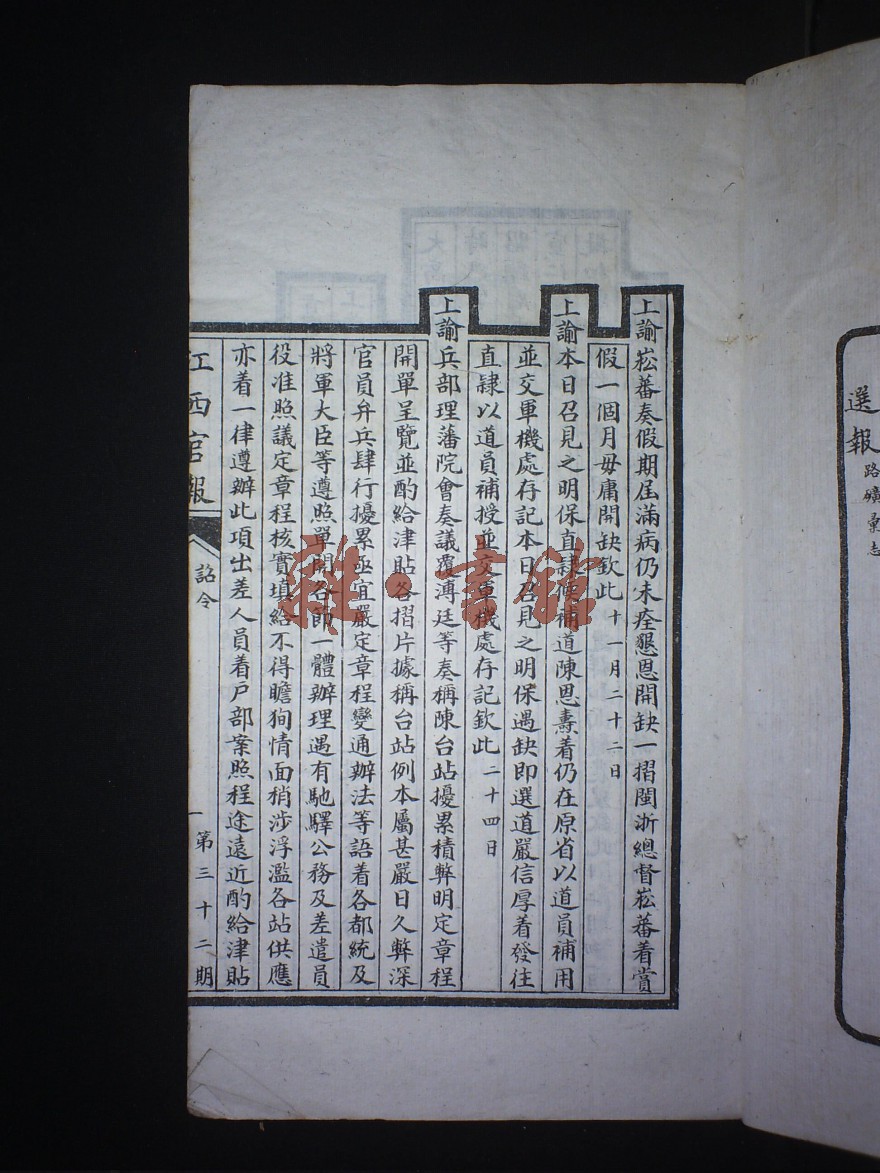 選報
路礦彙志
上諭崧蕃奏假期屆滿病仍未痊懇恩開缺一摺閩浙總督崧蕃着賞
假一個月毋庸開缺欽此 十一月二十二日
上諭本日召見之明保直隸候補道陳恩燾着仍在原省以道員補用
並交軍機處存記本日召見之明保遇缺即選道嚴信厚着發往
直隸以道員補授並交軍機處存記欽此 二十四日
上諭兵部理藩院會奏議覆溥廷等奏稱陳台站擾累積弊明定章程
開單呈覽並酌給津貼各摺片據稱台站例本屬甚嚴日久弊深
官員弁兵肆行擾累亟宜嚴定章程變通辦法等語着各都統及
將軍大臣等遵照單開各節一體辦理遇有馳驛公務及差遣員
役准照議定章程核實填給不得瞻狥情面稍涉浮濫各站供應
亦着一律遵辦此項出差人員着戶部案照程途遠近酌給津貼
江西官報
詔令
一
第三十二期
雜·書館